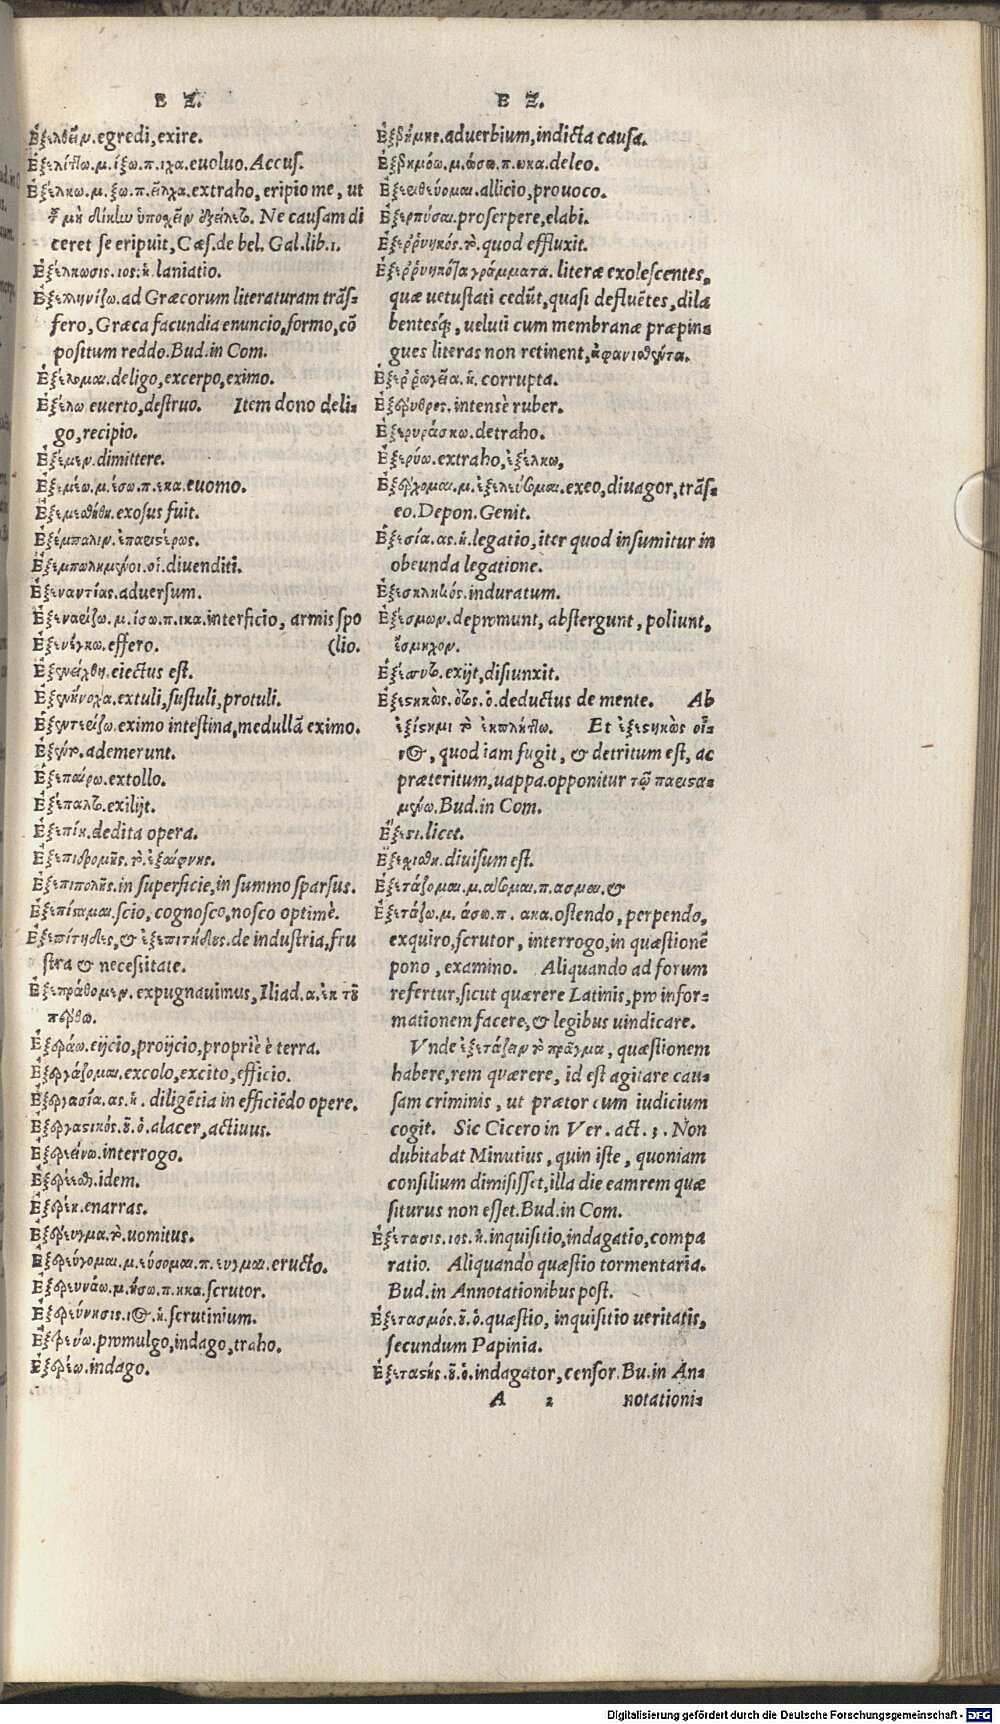 Ε Ξ.
Ἐξελθεῖν. egredi, exire.
Ἐξελίττω. μ. ίξω. π. ιχα. euoluo. Accus.
Ἐξέλκω. μ. ξω. π. εῖλχα. extraho, eripio me, ut
μὴ δίκην ὑποχεῖν ἐξείλετο. Ne causam di
ceret se eripuit, Cæs. de bel. Gal. lib. 1.
Ἐξέλκωσις. ιος. ἡ. laniatio.
Ἐξελληνίζω. ad Græcorum literaturam trãs-
fero, Græca facundia enuncio, formo, cõ
positum reddo. Bud. in Com.
Ἐξέλομαι. deligo, excerpo, eximo.
Ἐξέλω euerto, destruo. Item dono deli-
go, recipio.
Ἐξέμεν. dimittere.
Ἐξεμέω. μ. έσω. π. εκα. euomo.
Ἐξεμισήθη. exosus fuit.
Ἐξέμπαλιν. ὑπαυστέρως.
Ἐξεμπωλημένοι. οἱ. diuenditi.
Ἐξεναντίας. aduersum.
Ἐξεναρίζω. μ. ίσω. π. ικα. interficio, armis spo
Ἐξενέγκω. effero. (lio.
Ἐξενείχθη. eiectus est.
Ἐξενήνοχα. extuli, sustuli, protuli.
Ἐξεντερίζω. eximo intestina, medullã eximo.
Ἐξέντο. ademerunt.
Ἐξεπαίρω. extollo.
Ἐξέπαλτο. exilijt.
Ἐξεπίκ. dedita opera.
Ἐξεπιδρομῆς. τὸ ἐξαίφνης.
Ἐξεπιπολῆς. in superficie, in summo sparsus.
Ἐξεπίσταμαι. scio, cognosco, nosco optimè.
Ἐξεπίτηδες, & ἐξεπιτήδες. de industria, fru
stra & necessitate.
Ἐξεπράθομεν. expugnauimus, Iliad. α. ἐκ τοῦ
πέρθω.
Ἐξεράω. eijcio, proijcio, propriè è terra.
Ἐξεργάζομαι. excolo, excito, efficio.
Ἐξεργασία. ας. ἡ. diligẽtia in efficiẽdo opere.
Ἐξεργαστικός. οῦ. ὁ. alacer, actiuus.
Ἐξερεείνω. interrogo.
Ἐξερέεσθ. idem.
Ἐξερέει. enarras.
Ἐξέρευγμα. τὸ. uomitus.
Ἐξερεύγομαι. μ. εύσομαι. π. ευγμαι. eructo.
Ἐξερευνάω. μ. ήσω. π. ηκα. scrutor.
Ἐξερεύνησις. ιος. ἡ. scrutinium.
Ἐξερεύω. promulgo, indago, traho.
Ἐξερέω. indago.
Ε Ξ.
Ἐξερήμης. aduerbium, indicta causa.
Ἐξερημόω. μ. ώσω. π. ωκα. deleo.
Ἐξερεθεύομαι. allicio, prouoco.
Ἐξερπύσαι. proserpere, elabi.
Ἐξεῤῥυηκός. τὸ. quod effluxit.
Ἐξεῤῥυηκότα γράμματα. literæ exolescentes,
quæ uetustati cedũt, quasi defluẽtes, dila
bentesq́;, ueluti cum membranæ præpin-
gues literas non retinent, ἀφανισθέντα.
Ἐξεῤῥωγεῖα. ἡ. corrupta.
Ἐξέρυθρος. intensè ruber.
Ἐξερυράσκω. detraho.
Ἐξερύω. extraho, ἐξέλκω,
Ἐξέρχομαι. μ. ἐξελεύσομαι. exeo, diuagor, trãs-
eo. Depon. Genit.
Ἐξεσία. ας. ἡ. legatio, iter quod insumitur in
obeunda legatione.
Ἐξεσκληκός. induratum.
Ἐξέσμων. depromunt, abstergunt, poliunt,
ἔσμηχον.
Ἐξέσσυτο. exijt, disiunxit.
Ἐξεστηκὼς. ότος. ὁ. deductus de mente. Ab
ἐξίστημι τὸ ἐκπλήττω. Et ἐξεστηκὼς οἶ-
νος, quod iam fugit, & detritum est, ac
præteritum, uappa. opponitur τῷ παρισα-
μένῳ. Bud. in Com.
Ἔξεστι. licet.
Ἐξεσχίσθη. diuisum est.
Ἐξετάζομαι. μ. άσομαι. π. ασμαι. &
Ἐξετάζω. μ. άσω. π. ακα. ostendo, perpendo,
exquiro, scrutor, interrogo, in quæstionẽ
pono, examino. Aliquando ad forum
refertur, sicut quærere Latinis, pro infor-
mationem facere, & legibus uindicare.
Vnde ἐξετάζειν τὸ πρᾶγμα, quæstionem
habere, rem quærere, id est agitare cau-
sam criminis, ut prætor cum iudicium
cogit. Sic Cicero in Ver. act. 3. Non
dubitabat Minutius, quin iste, quoniam
consilium dimisisset, illa die eam rem quæ
siturus non esset. Bud. in Com.
Ἐξέτασις. ιος. ἡ. inquisitio, indagatio, compa
ratio. Aliquando quæstio tormentaria.
Bud. in Annotationibus post.
Ἐξετασμός. οῦ. ὁ. quæstio, inquisitio ueritatis,
secundum Papinia.
Ἐξεταστής. οῦ. ὁ. indagator, censor. Bu. in An-
A 2 notationi-
Digitalisierung gefördert durch die Deutsche Forschungsgemeinschaft - DFG